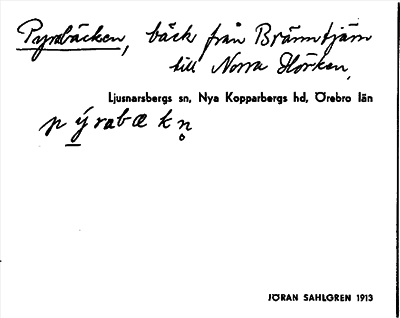 Pyrabäcken, bäck från Bränntjärn
till Norra Hörken,
Ljusnarsbergs sn, Nya Kopparbergs hd, Örebro län
pýrabækn̥
JÖRAN SAHLGREN 1913